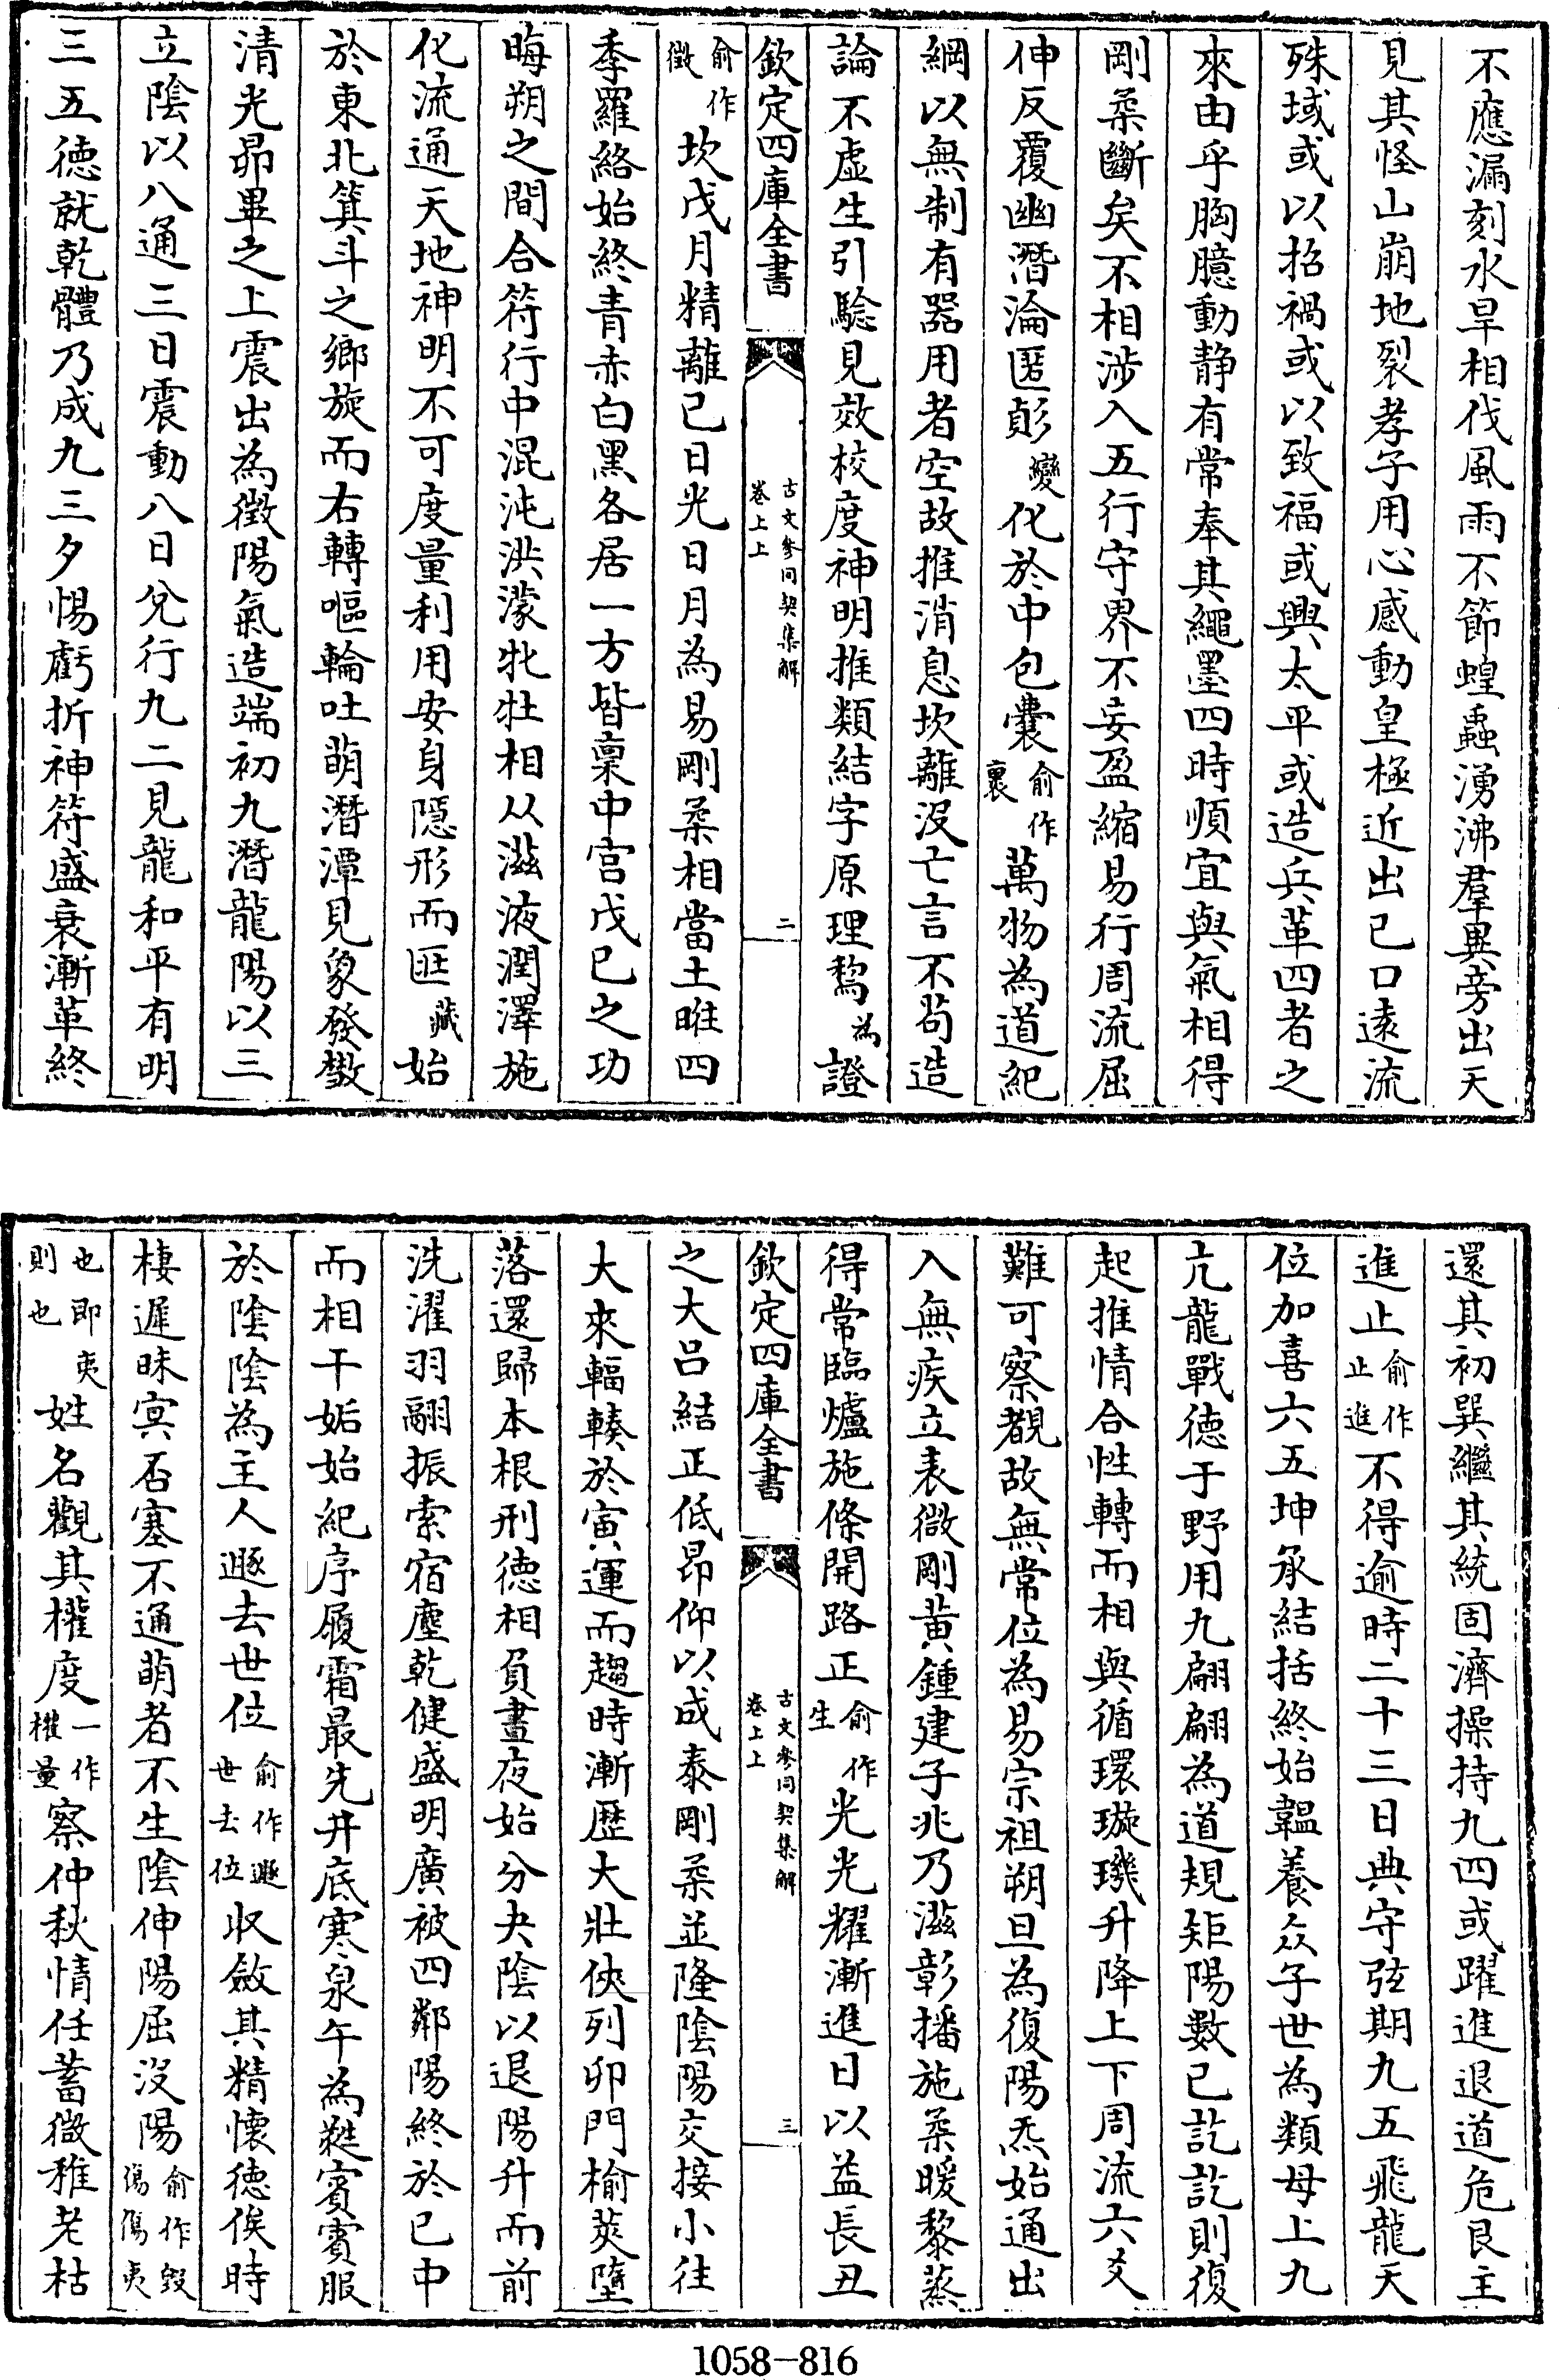 不應漏刻水旱相伐風雨不節蝗蟲湧沸羣異旁出天
見其怪山崩地裂孝子用心感動皇極近出己口遠流
殊域或以招禍或以致福或興太平或造兵革四者之
來由乎胸臆動静有常奉其繩墨四時順宜與氣相得
剛柔斷矣不相涉入五行守界不妄盈縮易行周流屈
伸反覆幽潛淪匿㣐變化於中包囊俞作裹萬物為道紀
綱以無制有器用者空故推消息坎離沒亡言不茍造
論不虛生引驗見效校度神明推類結字原理爲為證
欽定四庫全書
古文參同契集解
卷上上
二
俞作徵坎戊月精離己日光日月為易剛柔相當土睢四
季羅絡始終青赤白黑各居一方皆稟中宮戊己之功
晦朔之間合符行中混沌洪濛牝牡相从滋液潤澤施
化流通天地神明不可度量利用安身隱形而匨藏始
於東北箕斗之鄉旋而右轉嘔輪吐萌潛潭見象發散
清光昴畢之上震出為徵陽氣造端初九潛龍陽以三
立陰以八通三日震動八日兌行九二見龍和平有明
三五德就乾體乃成九三夕惕虧折神符盛衰漸革終
還其初巽繼其統固濟操持九四或躍進退道危艮主
進止俞作止進不得逾時二十三日典守弦期九五飛龍天
位加喜六五坤承結括終始韞養众子世為類母上九
亢龍戰德于野用九翩翩為道規矩陽數已訖訖則復
起推情合性轉而相與循環璇璣升降上下周流六爻
難可察覩故無常位為易宗祖朔旦為復陽炁始通出
入無疾立表微剛黃鍾建子兆乃滋彰播施柔暖黎蒸
得常臨爐施條開路正俞作生光光耀漸進日以益長丑
欽定四庫全書
古文參同契集解
卷上上
三
之大呂結正低昂仰以成泰剛柔並隆陰陽交接小往
大來輻輳於寅運而趨時漸歷大壯俠列卯門榆莢墮
落還歸本根刑德相負晝夜始分夬陰以退陽升而前
洗濯羽翮振索宿塵乾健盛明廣被四鄰陽終於巳中
而相干姤始紀序履霜最先井底寒泉午為蕤賓賓服
於陰陰為主人遯去世位俞作遯世去位收斂其精懷德俟時
棲遲昧冥否塞不通萌者不生陰伸陽屈沒陽俞作毀傷傷夷
也即夷則也姓名觀其權度一作權量察仲秋情任蓄微稚老枯
1058-816